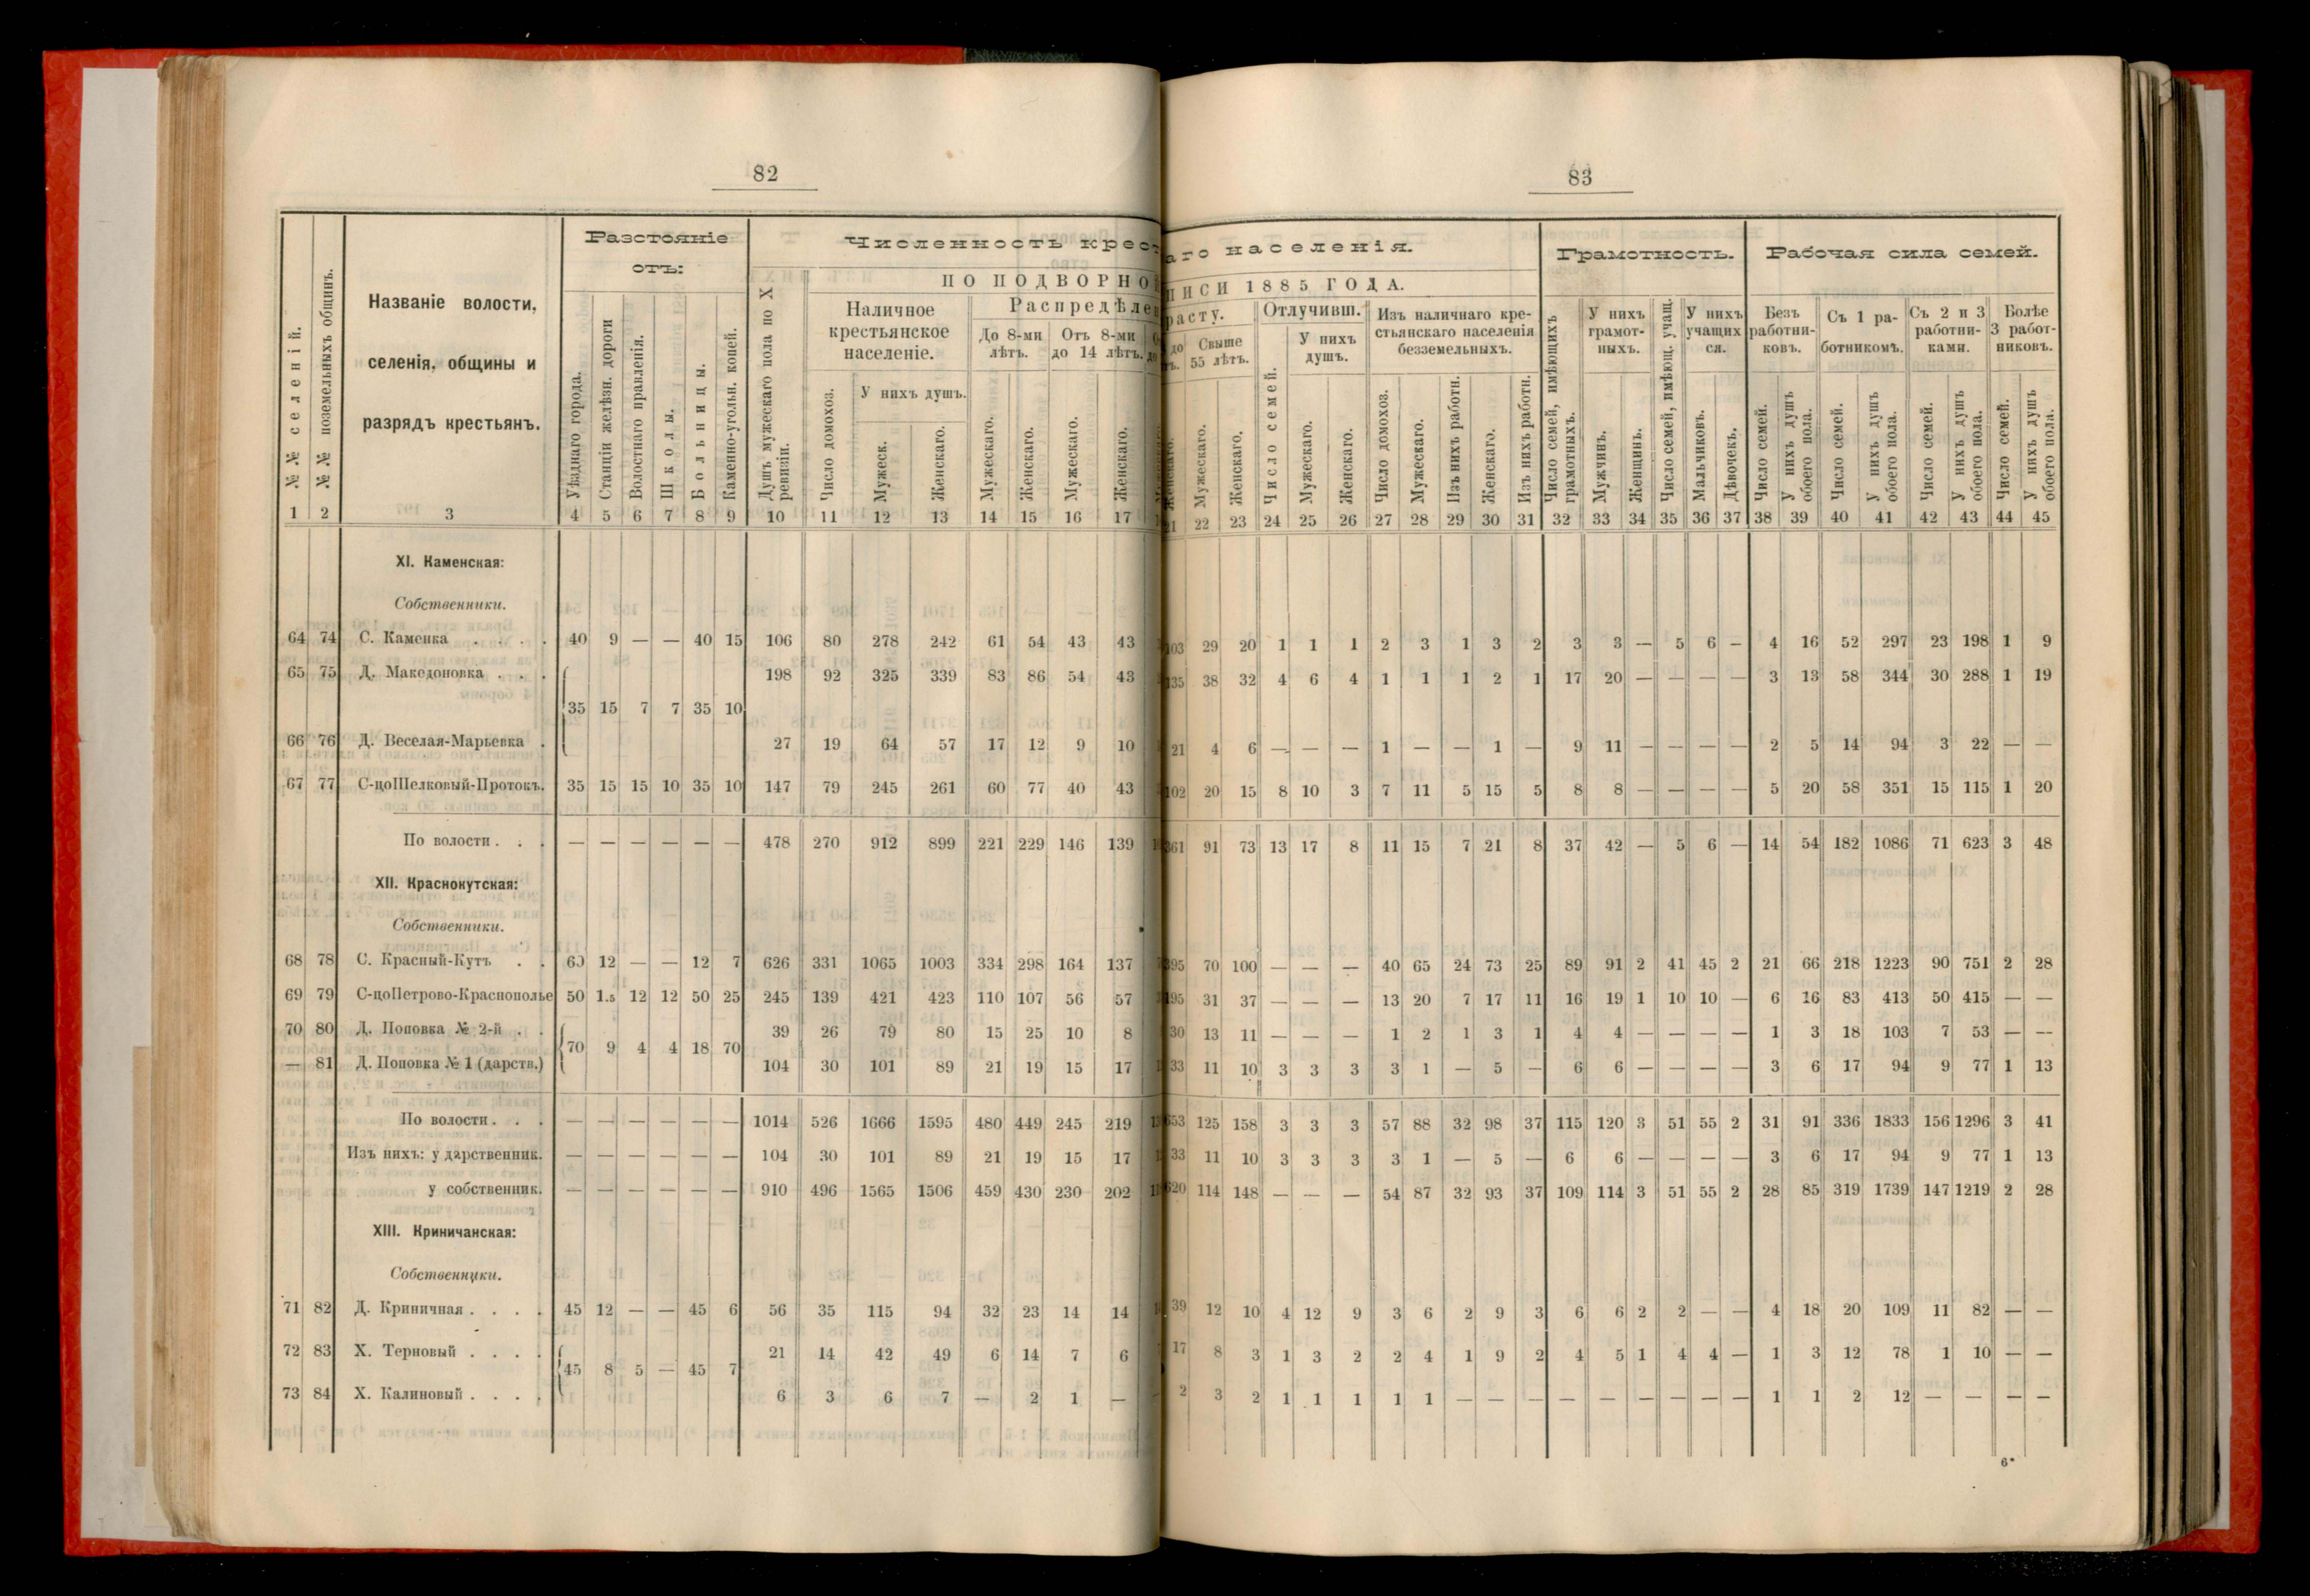 82
Разстояніе отъ:
Численность крест
ПО ПОДВОРНО
№№ селеній.
№№ поземельныхъ общинъ.
Названіе волости,
селенія, общины и
разрядъ крестьянъ.
Уѣзднаго города.
Станціи желѣзн. дороги
Волостнаго правленія.
Школы.
Больницы.
Каменно-угольн. копей.
Душъ мужескаго пола по X ревизіи.
Наличное крестьянское населеніе.
Число домохоз.
У нихъ душъ.
Мужеск.
Женскаго.
Распредѣлен
До 8-ми лѣтъ.
Мужескаго.
Женскаго.
Отъ 8-ми до 14 лѣтъ.
Мужескаго.
Женскаго.
1 2 3 4 5 6 7 8 9 10 11 12 13 14 15 16 17
XI. Каменская:
Собственники.
64 74 С. Каменка . . . . 40 9 — — 40 15 106 80 278 242 61 54 43 43
65 75 Д. Македоновка . . . 198 92 325 339 83 86 54 43
35 15 7 7 35 10
66 76 Д. Веселая-Марьевка . 27 19 64 57 17 12 9 10
67 77 С-цо Шелковый-Протокъ. 35 15 15 10 35 10 147 79 245 261 60 77 40 43
По волости . . . — — — — — — 478 270 912 899 221 229 146 139
XII. Краснокутская:
Собственники.
68 78 С. Красный-Кутъ . . 60 12 — — 12 7 626 331 1065 1003 334 298 164 137
69 79 С-цо Петрово-Краснополье 50 1.5 12 12 50 25 245 139 421 423 110 107 56 57
70 80 Д. Поповка № 2-й . . 39 26 79 80 15 25 10 8
70 9 4 4 18 70
— 81 Д. Поповка № 1 (дарств.) 104 30 101 89 21 19 15 17
По волости . . . — — — — — — 1014 526 1666 1595 480 449 245 219
Изъ нихъ: у дарственник. — — — — — — 104 30 101 89 21 19 15 17
у собственник. — — — — — — 910 496 1565 1506 459 430 230 202
XIII. Криничанская:
Собственники.
71 82 Д. Криничная . . . . 45 12 — — 45 6 56 35 115 94 32 23 14 14
72 83 Х. Терновый . . . . 21 14 42 49 6 14 7 6
45 8 5 — 45 7
73 84 Х. Калиновый . . . . 6 3 6 7 — 2 1 —
83
аго населенія.
Грамотность.
Рабочая сила семей.
ПИСИ 1885 ГОДА.
расту.
Свыше 55 лѣтъ.
Женскаго.
Мужескаго.
Женскаго.
Отлучивш.
Число семей.
У нихъ душъ.
Мужескаго.
Женскаго.
Изъ наличнаго крестьянскаго населенія безземельныхъ.
Число домохоз.
Мужескаго.
Изъ нихъ работн.
Женскаго.
Изъ нихъ работн.
Число семей, имѣющихъ грамотныхъ.
У нихъ грамотныхъ.
Мужчинъ.
Женщинъ.
Число семей, имѣющ. учащ.
У нихъ учащихся.
Мальчиковъ.
Дѣвочекъ.
Безъ работниковъ.
Число семей.
У нихъ душъ обоего пола.
Съ 1 работникомъ.
Число семей.
У нихъ душъ обоего пола.
Съ 2 и 3 работниками.
Число семей.
У нихъ душъ обоего пола.
Болѣе 3 работниковъ.
Число семей.
У нихъ душъ обоего пола.
21 22 23 24 25 26 27 28 29 30 31 32 33 34 35 36 37 38 39 40 41 42 43 44 45
103 29 20 1 1 1 2 3 1 3 2 3 3 — 5 6 — 4 16 52 297 23 198 1 9
135 38 32 4 6 4 1 1 1 2 1 17 20 — — — — 3 13 58 344 30 288 1 19
21 4 6 — — — 1 — — 1 — 9 11 — — — — 2 5 14 94 3 22 — —
102 20 15 8 10 3 7 11 5 15 5 8 8 — — — — 5 20 58 351 15 115 1 20
361 91 73 13 17 8 11 15 7 21 8 37 42 — 5 6 — 14 54 182 1086 71 623 3 48
395 70 100 — — — 40 65 24 73 25 89 91 2 41 45 2 21 66 218 1223 90 751 2 28
195 31 37 — — — 13 20 7 17 11 16 19 1 10 10 — 6 16 83 413 50 415 — —
30 13 11 — — — 1 2 1 3 1 4 4 — — — — 1 3 18 103 7 53 — —
33 11 10 3 3 3 3 1 — 5 — 6 6 — — — — 3 6 17 94 9 77 1 13
653 125 158 3 3 3 57 88 32 98 37 115 120 3 51 55 2 31 91 336 1833 156 1296 3 41
33 11 10 3 3 3 3 1 — 5 — 6 6 — — — — 3 6 17 94 9 77 1 13
620 114 148 — — — 54 87 32 93 37 109 114 3 51 55 2 28 85 319 1739 147 1219 2 28
39 12 10 4 12 9 3 6 2 9 3 6 6 2 2 — — 4 18 20 109 11 82 — —
17 8 3 1 3 2 2 4 1 9 2 4 5 1 4 4 — 1 3 12 78 1 10 — —
2 3 2 1 1 1 1 1 — — — — — — — — — 1 1 2 12 — — — —
6*